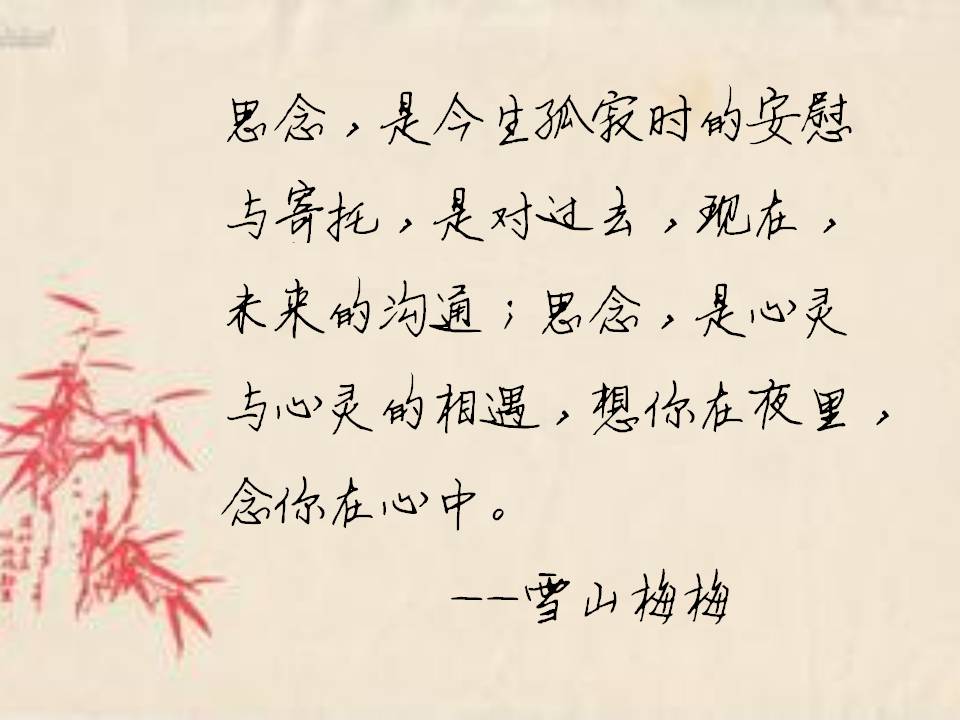 思念，是今生孤寂时的安慰
与寄托，是对过去，现在，
未来的沟通；思念，是心灵
与心灵的相遇，想你在夜里，
念你在心中。
--雪山梅梅